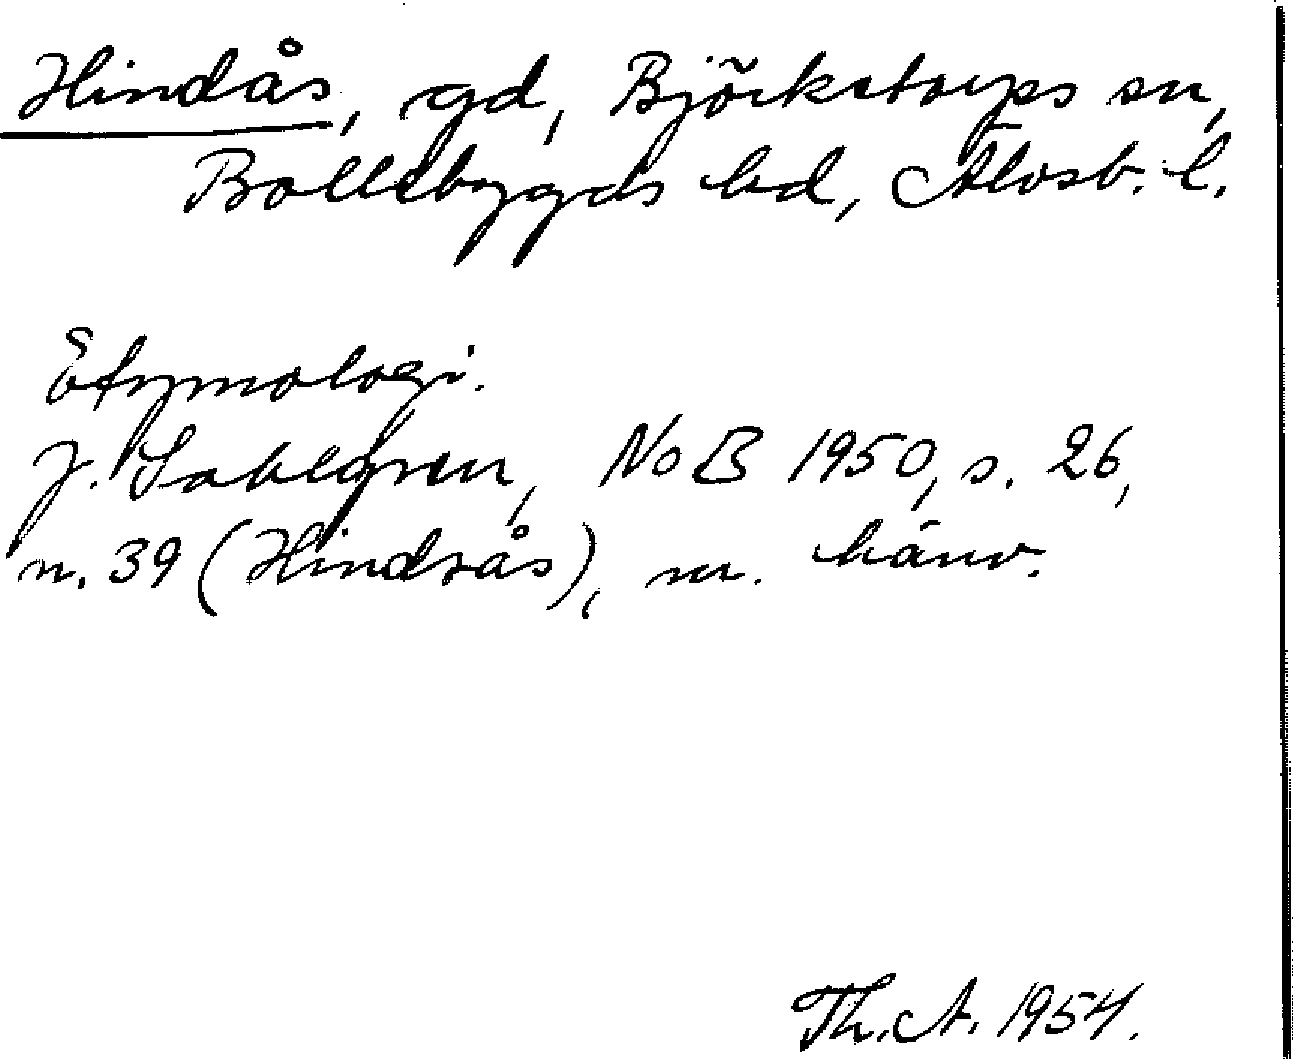 Hindås, gd, Björketorps sn,
Bollebygds hd, Älvsb. l.
Etymologi.
J. Sahlgren, NoB 1950, s. 26,
n. 39 (Hindrås), m. hänv.
Th. A. 1954.